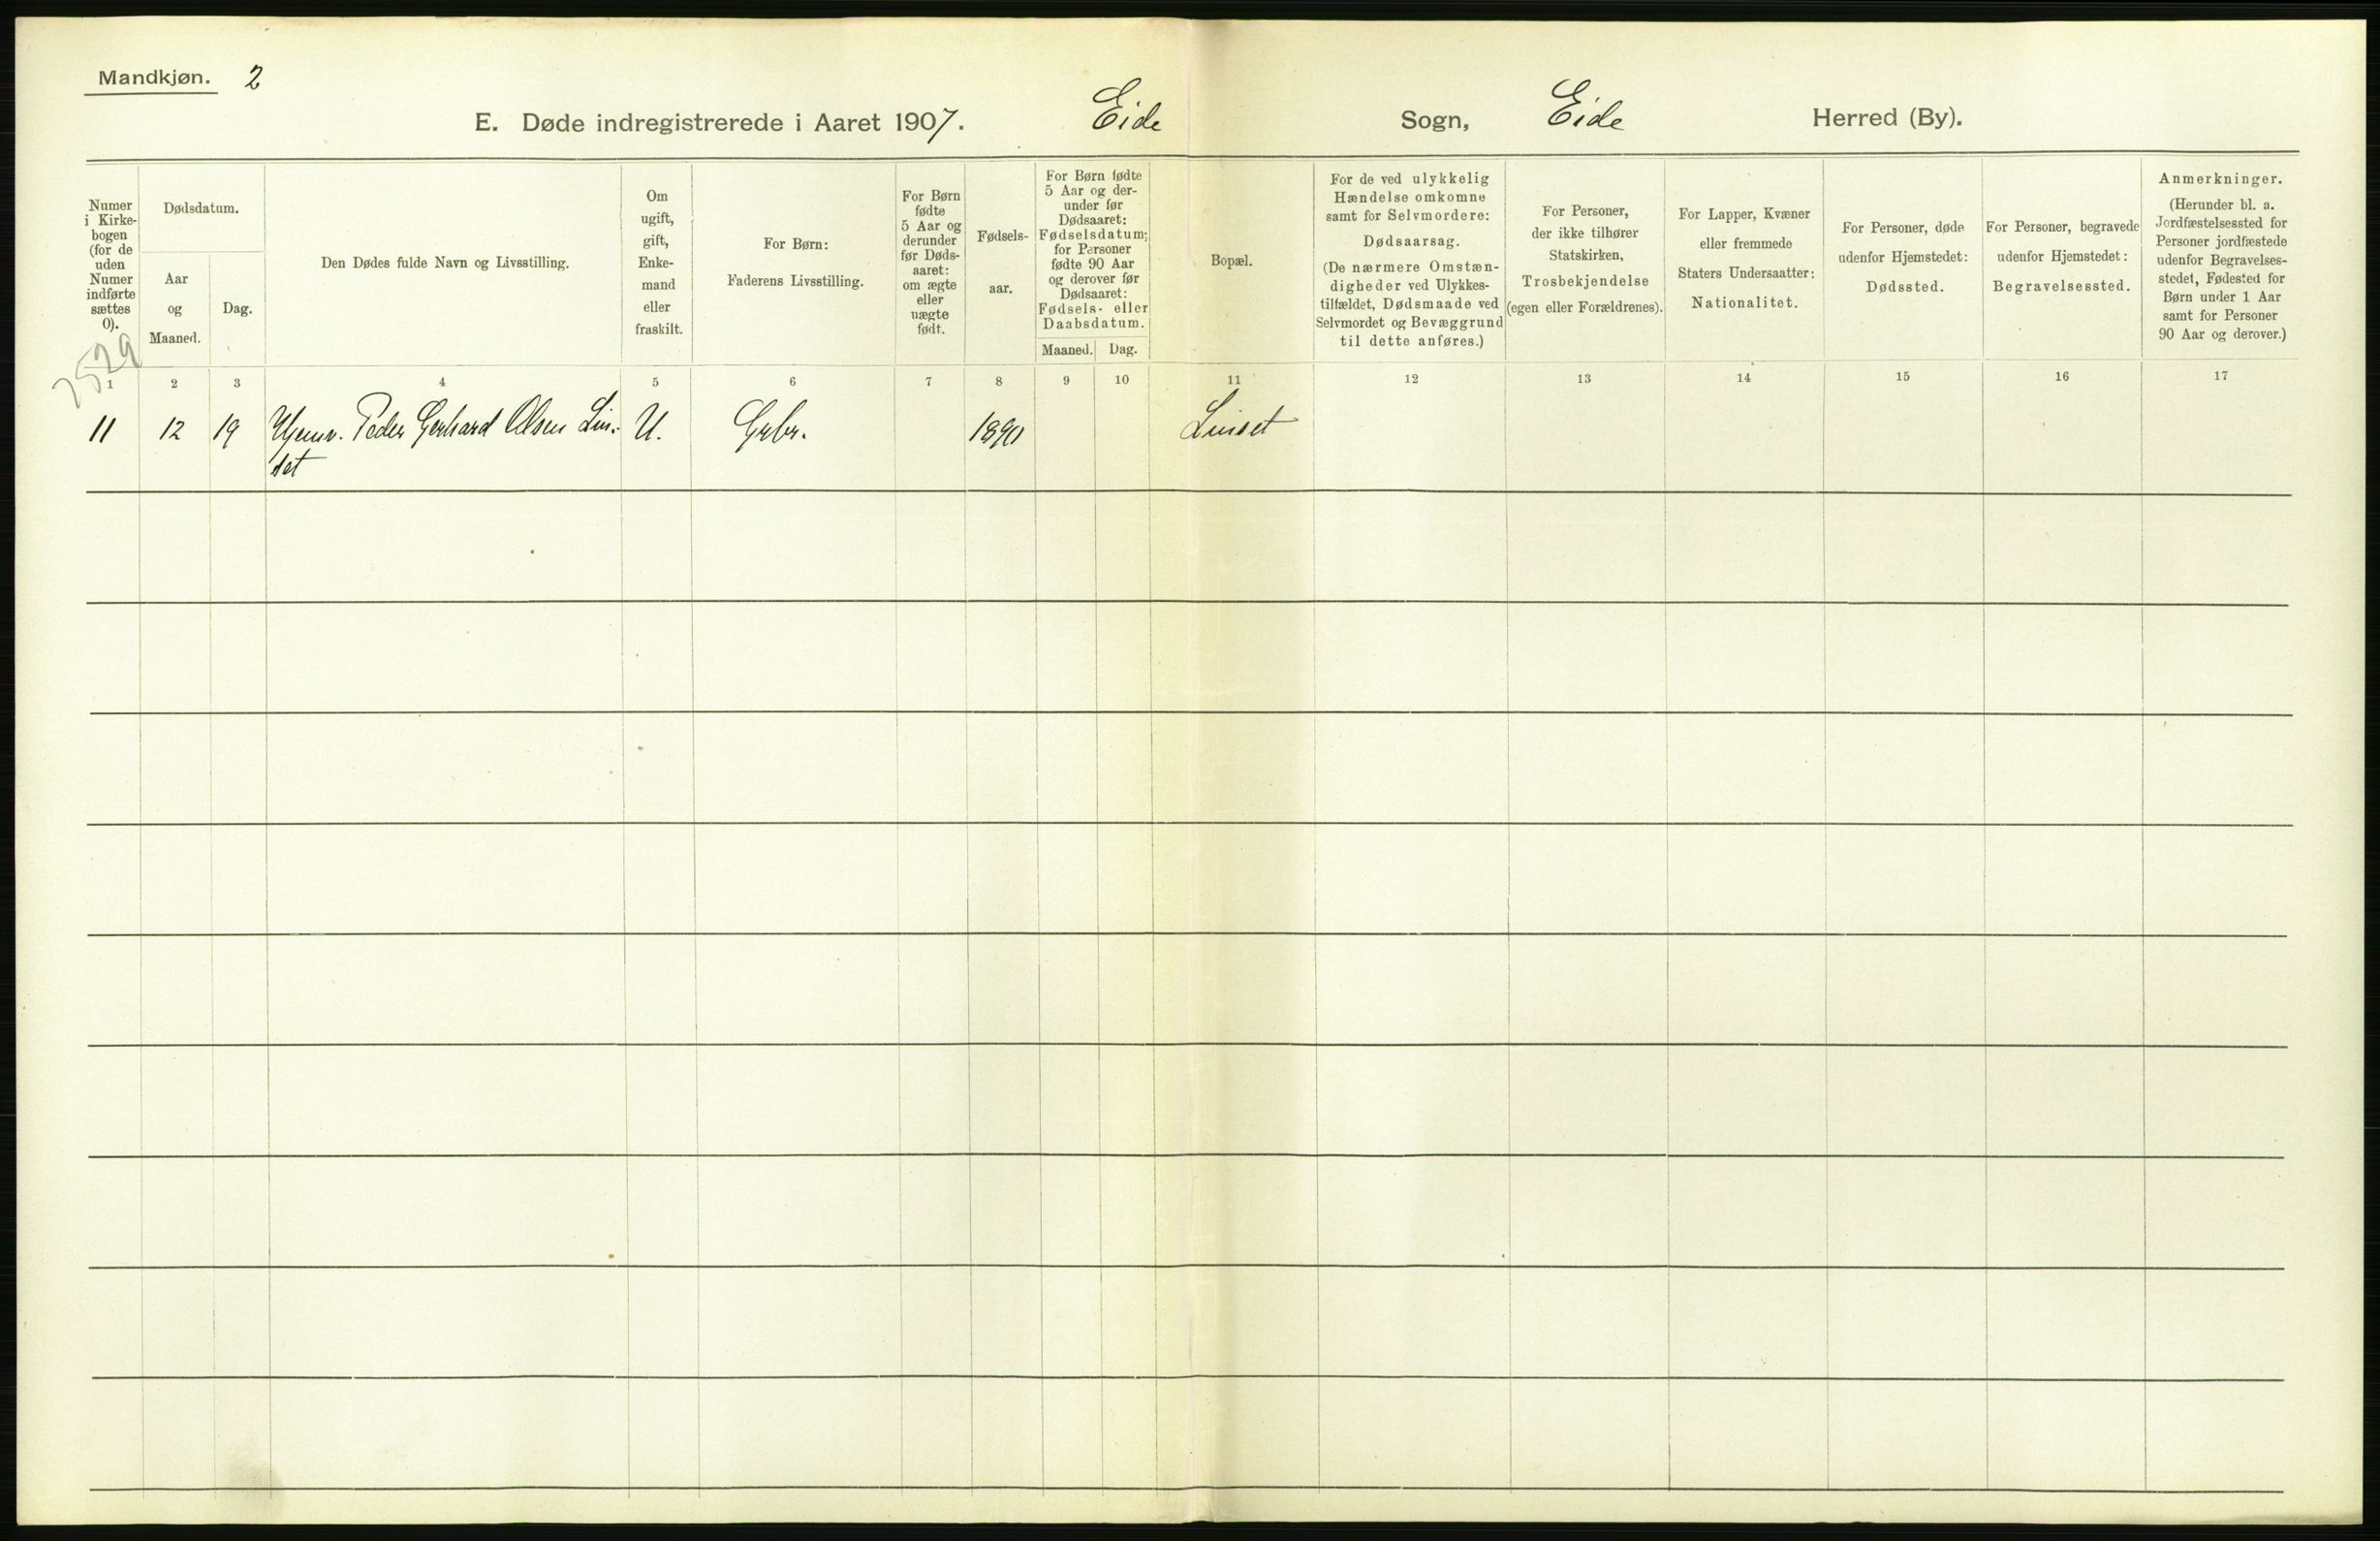 Mandkjøn. 2
E. Døde indregistrerede i Aaret 1907. Eide Sogn, Eide Herred (By).
Numer
i Kirke-
bogen
(for de
uden
Numer
indførte
sættes
0).
Dødsdatum.
Aar
og
Maaned.
Dag.
Den Dødes fulde Navn og Livsstilling.
Om
ugift,
gift,
Enke-
mand
eller
fraskilt.
For Børn:
Faderens Livsstilling.
For Børn
fødte
5 Aar og
derunder
før Døds-
aaret:
om ægte
eller
uægte
født.
Fødsels-
aar.
For Børn fødte
5 Aar og der-
under før
Dødsaaret:
Fødselsdatum;
for Personer
fødte 90 Aar
og derover før
Dødsaaret:
Fødsels- eller
Daabsdatum.
Maaned. Dag.
Bopæl.
For de ved ulykkelig
Hændelse omkomne
samt for Selvmordere:
Dødsaarsag.
(De nærmere Omstæn-
digheder ved Ulykkes-
tilfældet, Dødsmaade ved
Selvmordet og Bevæggrund
til dette anføres.)
For Personer,
der ikke tilhører
Statskirken,
Trosbekjendelse
(egen eller Forældrenes).
For Lapper, Kvæner
eller fremmede
Staters Undersaatter:
Nationalitet.
For Personer, døde
udenfor Hjemstedet:
Dødssted.
For Personer, begravede
udenfor Hjemstedet:
Begravelsessted.
Anmerkninger.
(Herunder bl. a.
Jordfæstelsessted for
Personer jordfæstede
udenfor Begravelses-
stedet, Fødested for
Børn under 1 Aar
samt for Personer
90 Aar og derover.)
1 2 3 4 5 6 7 8 9 10 11 12 13 14 15 16 17
11 12 19 Peder Gerhard Olsen Lin- U. Grbr. 1890 Linset
set